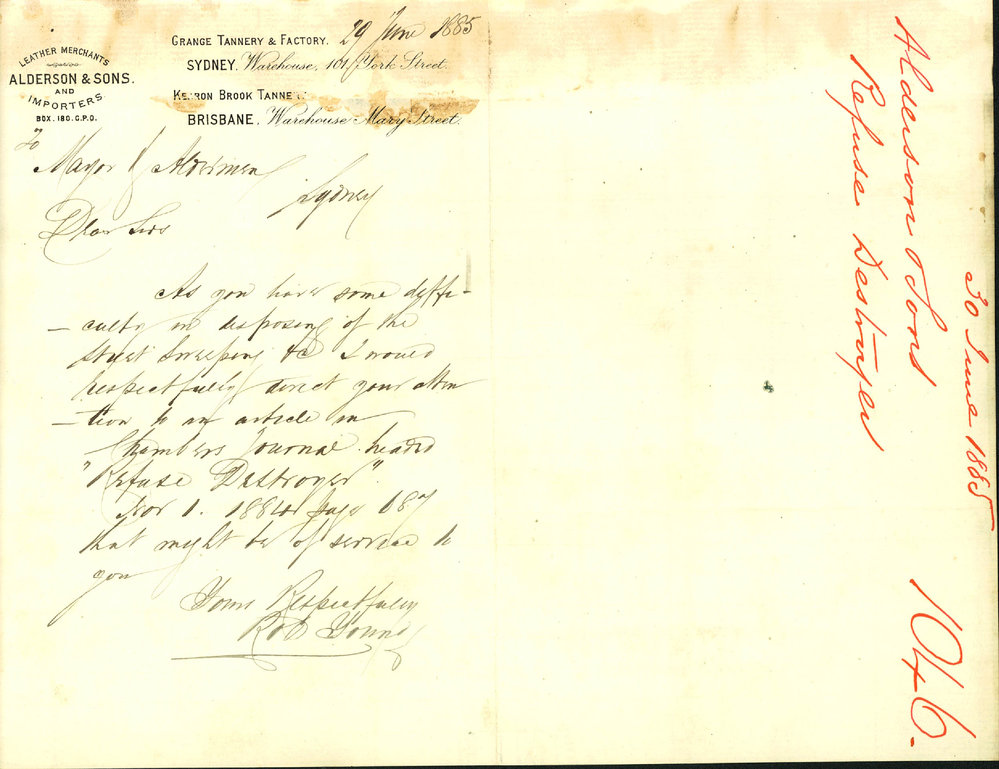 LEATHER MERCHANTS
ALDERSON & SONS.
AND
IMPORTERS
BOX. 180. G.P.O.
GRANGE TANNERY & FACTORY. 29 June 1885
SYDNEY. Warehouse, 101 York Street.
BROOK
BRISBANE. Warehouse Mary Street.
To
Mayor & Aldermen
Sydney
Dear Sirs
As you have some diffi-
-culty in disposing of the
Street Sweeping &c I would
respectfully direct your atten
-tion to an article in
Chambers Journal headed
"Refuse Destroyer".
1. 1884 page 687
that might be of service to
you
Yours Respectfully
Rob Young
Alderson & Sons
Refuse Destroyer
30 June 1885
1046.